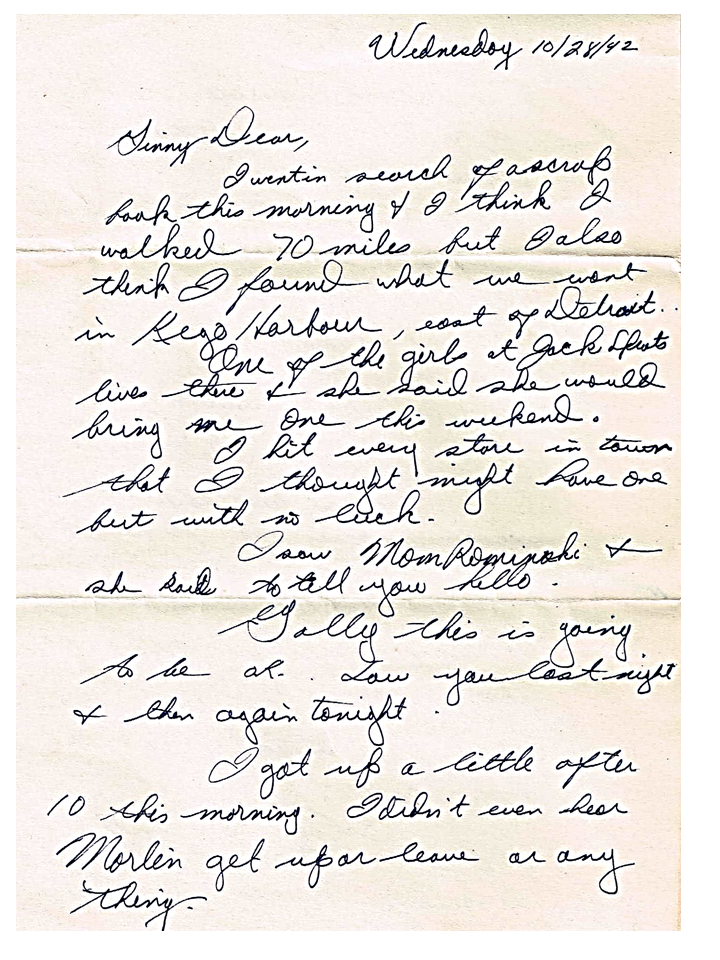 Wednesday 10/28/42
Ginny Dear,
I went in search of a scrap
book this morning & I think I
walked 70 miles but I also
think I found what we want
in Kego Harbour, east of Detroit..
One of the girls at Jack
lives there & she said she would
bring me one this weekend.
I hit every store in town
that I thought might have one
but with no luck.
I saw Mom Rominski &
she said to tell you hello.
Golly this is going
to be ok. Saw you last night
& then again tonight.
I got up a little after
10 this morning. I didn't even hear
Morlin get up or leave or any
thing.